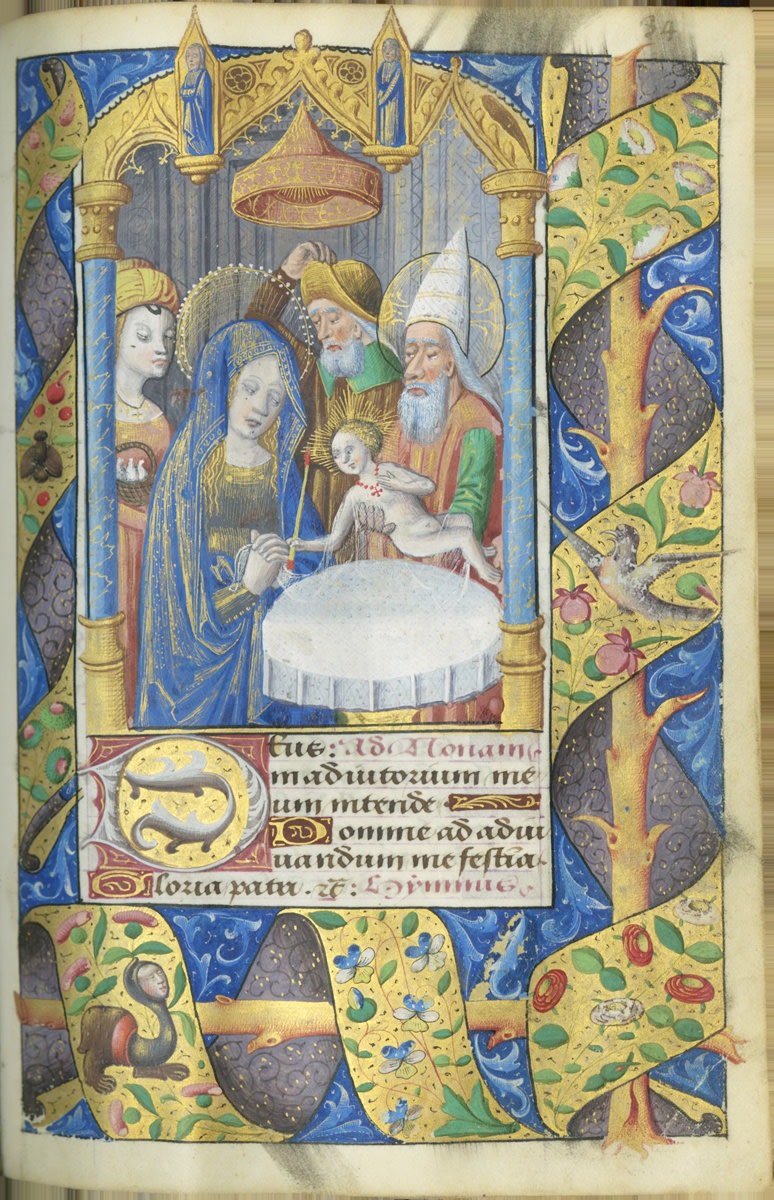 34
eus: Ad Nonam
in adiutorium me
um intende
Domine ad adiu
uandum me festina
Gloria patri. R: Hymnus